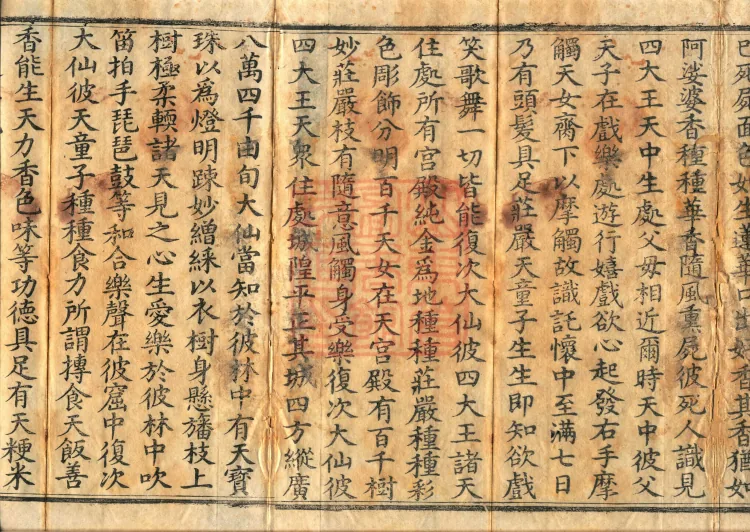 已死屍面色如生蓮華口出好香其香猶如
阿娑婆香種種華香隨風熏屍彼死人識見
四大王天中生處父母相近爾時天中彼父
天子在戲樂處遊行嬉戲欲心起發右手摩
觸天女齊下以摩觸故識託懷中至滿七日
乃有頭髮具足莊嚴天童子生生即知欲戲
笑歌舞一切皆能復次大仙彼四大王諸天
住處所有宮殿純金為地種種莊嚴種種彩
色彫飾分明百千天女在天宮殿有百千樹
妙莊嚴枝有隨意風觸身受樂復次大仙彼
四大王天衆住處城隍平正其城四方縱廣
八萬四千由旬大仙當知於彼林中有天寶
珠以為燈明踈妙繒綵以衣樹身懸旛枝上
樹極柔輭諸天見之心生愛樂於彼林中吹
笛拍手琵琶鼓等和合樂聲在彼窟中復次
大仙彼天童子種種食力所謂摶食天飯善
香能生天力香色味等功德具足有天粳米